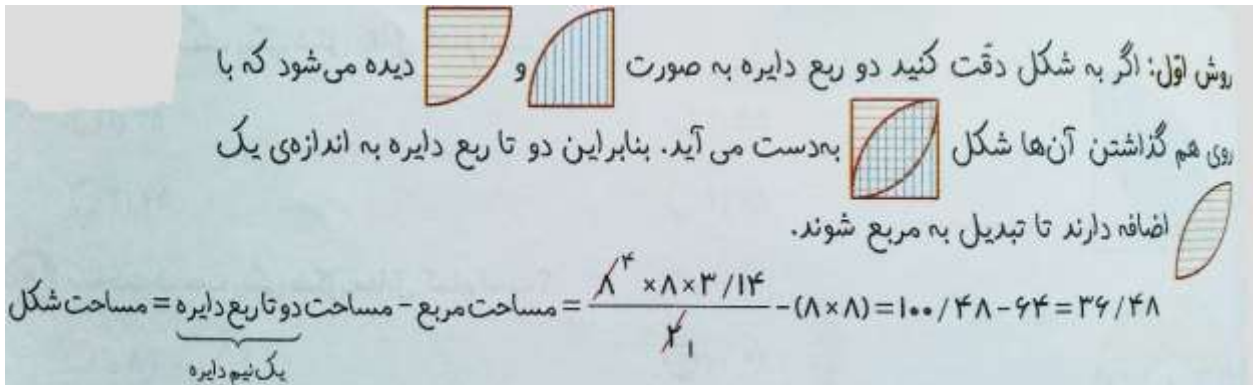 روش اوّل: اگر به شکل دقّت کنید دو ربع دایره به صورت و دیده می‌شود که با
روی هم گذاشتن آن‌ها شکل به‌دست می آید. بنابراین دو تا ربع دایره به اندازه‌ی یک
اضافه دارند تا تبدیل به مربع شوند.
مساحت شکل = مساحت دو تا ربع دایره - مساحت مربع = (۸×۸×۳/۱۴)/۲ - (۸×۸) = ۱۰۰/۴۸ - ۶۴ = ۳۶/۴۸
۴ ۱
یک نیم دایره